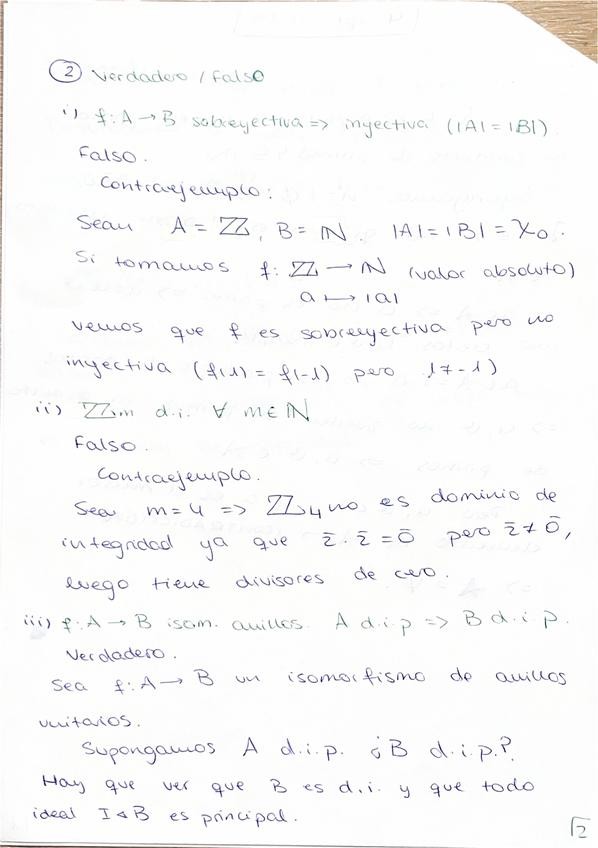 ② Verdadero / Falso
i) f: A → B sobreyectiva => inyectiva (|A| = |B|)
Falso.
Contraejemplo:
Sean A = ℤ, B = ℕ. |A| = |B| = χ₀.
Si tomamos f: ℤ → ℕ (valor absoluto)
a ↦ |a|
vemos que f es sobreyectiva pero no
inyectiva (f(1) = f(-1) pero 1 ≠ -1)
ii) ℤm d.i. ∀ m ∈ ℕ
Falso.
Contraejemplo.
Sea m = 4 => ℤ₄ no es dominio de
integridad ya que 2̄ · 2̄ = 0̄ pero 2̄ ≠ 0̄,
luego tiene divisores de cero.
iii) f: A → B isom. anillos. A d.i.p => B d.i.p.
Verdadero.
Sea f: A → B un isomorfismo de anillos
unitarios.
Supongamos A d.i.p. ¿B d.i.p.?
Hay que ver que B es d.i. y que todo
ideal I ⊲ B es principal.
√2